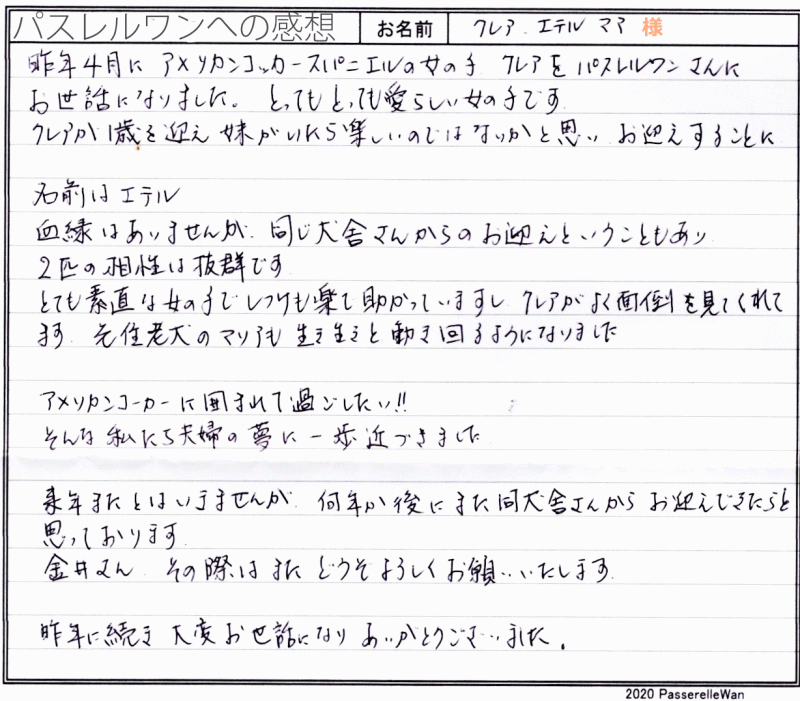 パスレルワンへの感想 お名前 クレア.エテル ママ 様
昨年4月に アメリカンコッカースパニエルの女の子 クレアを パスレルワンさんに
お世話になりました。 とってもとっても愛らしい女の子です
クレアが1歳を迎え 妹がいたら楽しいのではないかと思い お迎えすることに
名前はエテル
血縁はありませんが、同じ犬舎さんからのお迎えということもあり
2匹の相性は抜群です
とても素直な女の子でしつけも楽で助かっていますし クレアがよく面倒を見てくれて
ます 先住老犬のマリアも 生き生きと動き回るようになりました
アメリカンコーカーに囲まれて過ごしたい!!
そんな私たち夫婦の夢に一歩近づきました
来年またとはいきませんが、何年か後にまた同犬舎さんから お迎えできたらと
思っております
金井さん その際はまた どうぞよろしくお願いいたします
昨年に続き 大変お世話になり ありがとうございました.
2020 PasserelleWan